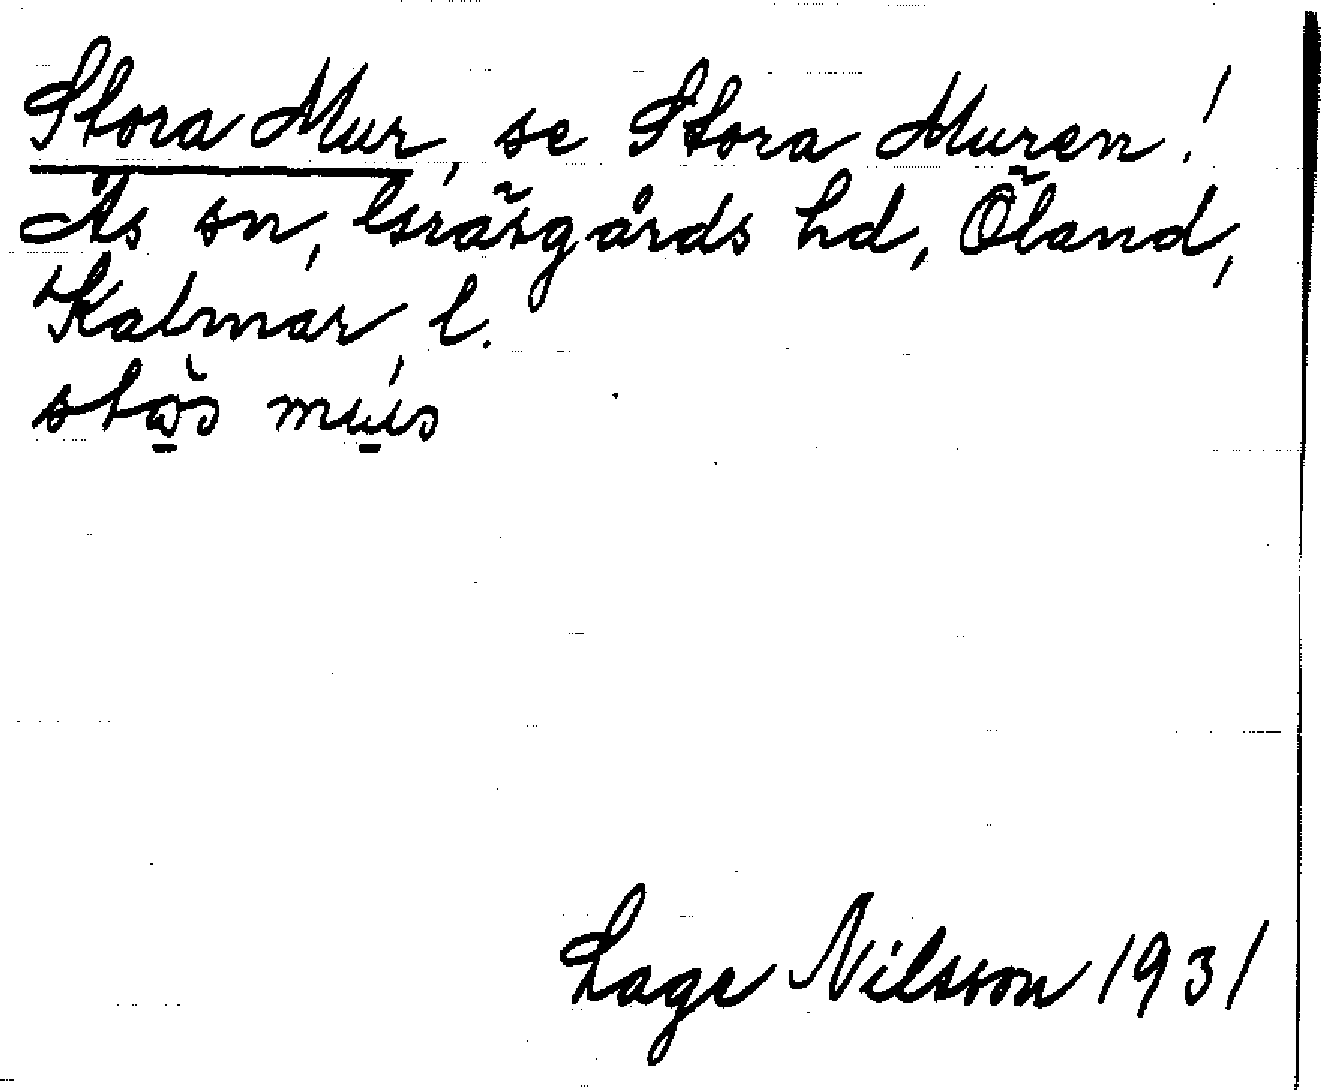 Stora Mur, se Stora Muren!
Ås sn, Gräsgårds hd, Öland,
Kalmar l.
Lage Nilsson 1931